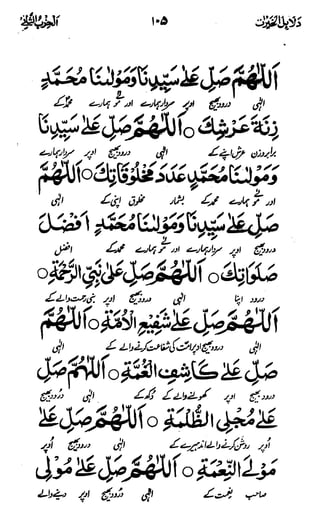 دلایل الخیرات ١٠٥ الحزب الثانی
اَللّٰهُمَّ صَلِّ عَلٰی سَیِّدِنَا وَمَوْلٰنَا مُحَمَّدٍ
الٰہی درود بھیج اوپر سردار ہمارے اور ہمارے محمد کے
زِنَةَ عَرْشِكَ ○ اَللّٰهُمَّ صَلِّ عَلٰی سَیِّدِنَا
برابر وزن عرش اپنے کے الٰہی درود بھیج اوپر سردار ہمارے
وَمَوْلٰنَا مُحَمَّدٍ عَدَدَ مَخْلُوْقَاتِكَ ○ اَللّٰهُمَّ
اور ہمارے محمد کے بشمار مخلوق اپنی کے الٰہی
صَلِّ عَلٰی سَیِّدِنَا وَمَوْلٰنَا مُحَمَّدٍ اَفْضَلَ
درود بھیج اوپر سردار ہمارے اور ہمارے محمد کے افضل
صَلَوَاتِكَ ○ اَللّٰهُمَّ صَلِّ عَلٰی نَبِیِّ الرَّحْمَةِ ○
درود اپنا الٰہی درود بھیج اوپر نبی رحمت والے کے
اَللّٰهُمَّ صَلِّ عَلٰی شَفِیْعِ الْاُمَّةِ ○ اَللّٰهُمَّ
الٰہی درود بھیج اوپر امت کی شفاعت کرنے والے کے الٰہی
صَلِّ عَلٰی كَاشِفِ الْغُمَّةِ ○ اَللّٰهُمَّ صَلِّ
درود بھیج اوپر کھولنے والے کے الٰہی درود بھیج
عَلٰی مُجْلِی الظُّلْمَةِ ○ اَللّٰهُمَّ صَلِّ عَلٰی
اوپر روشن کرنے والے اندھیرے کے الٰہی درود بھیج اوپر
مَوْلَی النِّعْمَةِ ○ اَللّٰهُمَّ صَلِّ عَلٰی مُوْلِی
صاحب نعمت کے الٰہی درود بھیج اوپر دینے والے